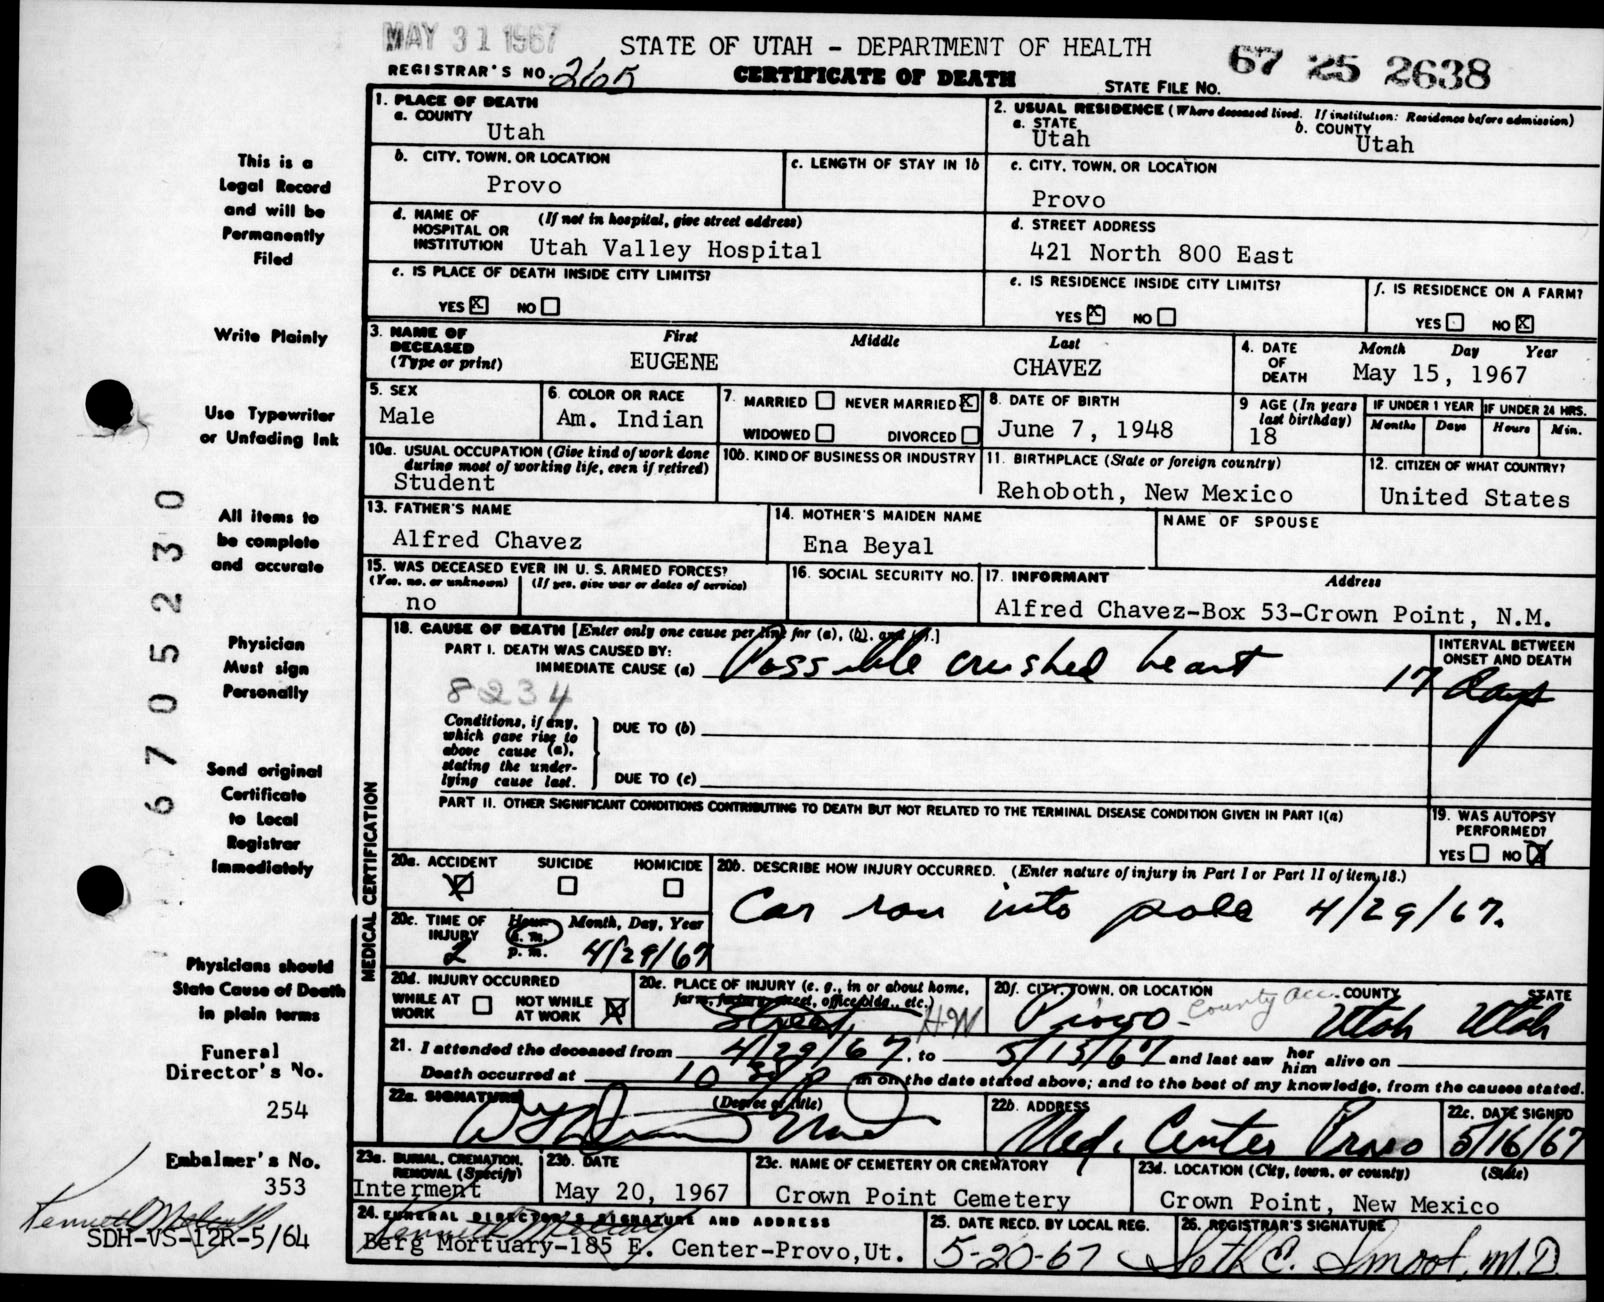 MAY 31 1967
STATE OF UTAH - DEPARTMENT OF HEALTH
67 25 2638
REGISTRAR'S NO. 265
CERTIFICATE OF DEATH
STATE FILE NO.
This is a
Legal Record
and will be
Permanently
Filed
Write Plainly
Use Typewriter
or Unfading Ink
All items to
be complete
and accurate
Physician
Must sign
Personally
Send original
Certificate
to Local
Registrar
Immediately
Physicians should
State Cause of Death
in plain terms
Funeral
Director's No.
254
Embalmer's No.
353
SDH-VS-12R-5/64
67 05230
1. PLACE OF DEATH
a. COUNTY
Utah
2. USUAL RESIDENCE (Where deceased lived. If institution: Residence before admission)
a. STATE
Utah
b. COUNTY
Utah
b. CITY, TOWN, OR LOCATION
Provo
c. LENGTH OF STAY IN 1b
c. CITY, TOWN, OR LOCATION
Provo
d. NAME OF HOSPITAL OR INSTITUTION (If not in hospital, give street address)
Utah Valley Hospital
d. STREET ADDRESS
421 North 800 East
e. IS PLACE OF DEATH INSIDE CITY LIMITS?
YES X NO
e. IS RESIDENCE INSIDE CITY LIMITS?
YES X NO
f. IS RESIDENCE ON A FARM?
YES NO X
3. NAME OF DECEASED (Type or print)
First Middle Last
EUGENE CHAVEZ
4. DATE OF DEATH
Month Day Year
May 15, 1967
5. SEX
Male
6. COLOR OR RACE
Am. Indian
7. MARRIED NEVER MARRIED X
WIDOWED DIVORCED
8. DATE OF BIRTH
June 7, 1948
9 AGE (In years last birthday)
18
IF UNDER 1 YEAR
Months Days
IF UNDER 24 HRS.
Hours Min.
10a. USUAL OCCUPATION (Give kind of work done during most of working life, even if retired)
Student
10b. KIND OF BUSINESS OR INDUSTRY
11. BIRTHPLACE (State or foreign country)
Rehoboth, New Mexico
12. CITIZEN OF WHAT COUNTRY?
United States
13. FATHER'S NAME
Alfred Chavez
14. MOTHER'S MAIDEN NAME
Ena Beyal
NAME OF SPOUSE
15. WAS DECEASED EVER IN U. S. ARMED FORCES?
(Yes, no, or unknown) (If yes, give war or dates of service)
no
16. SOCIAL SECURITY NO.
17. INFORMANT Address
Alfred Chavez-Box 53-Crown Point, N.M.
MEDICAL CERTIFICATION
18. CAUSE OF DEATH [Enter only one cause per line for (a), (b), and (c).]
PART I. DEATH WAS CAUSED BY:
IMMEDIATE CAUSE (a) Possible crushed heart
INTERVAL BETWEEN ONSET AND DEATH
17 days
8234
Conditions, if any, which gave rise to above cause (a), stating the underlying cause last.
DUE TO (b)
DUE TO (c)
PART II. OTHER SIGNIFICANT CONDITIONS CONTRIBUTING TO DEATH BUT NOT RELATED TO THE TERMINAL DISEASE CONDITION GIVEN IN PART I(a)
19. WAS AUTOPSY PERFORMED?
YES NO X
20a. ACCIDENT SUICIDE HOMICIDE
X
20b. DESCRIBE HOW INJURY OCCURRED. (Enter nature of injury in Part I or Part II of item 18.)
Car ran into pole 4/29/67.
20c. TIME OF INJURY
Hour Month, Day, Year
2 a.m. p.m. 4/29/67
20d. INJURY OCCURRED
WHILE AT WORK NOT WHILE AT WORK X
20e. PLACE OF INJURY (e. g., in or about home, farm, factory, street, office bldg., etc.)
Street HW
20f. CITY, TOWN, OR LOCATION COUNTY STATE
Provo - County Acc. Utah Utah
21. I attended the deceased from 4/29/67, to 5/15/67 and last saw her him alive on
Death occurred at 10 30 P m on the date stated above; and to the best of my knowledge, from the causes stated.
22a. SIGNATURE (Degree or title)
22b. ADDRESS
Med. Center Provo
22c. DATE SIGNED
5/16/67
23a. BURIAL, CREMATION, REMOVAL (Specify)
Interment
23b. DATE
May 20, 1967
23c. NAME OF CEMETERY OR CREMATORY
Crown Point Cemetery
23d. LOCATION (City, town, or county) (State)
Crown Point, New Mexico
24. FUNERAL DIRECTOR'S SIGNATURE AND ADDRESS
Berg Mortuary-185 E. Center-Provo,Ut.
25. DATE RECD. BY LOCAL REG.
5-20-67
26. REGISTRAR'S SIGNATURE
Seth C. Smoot, M.D.